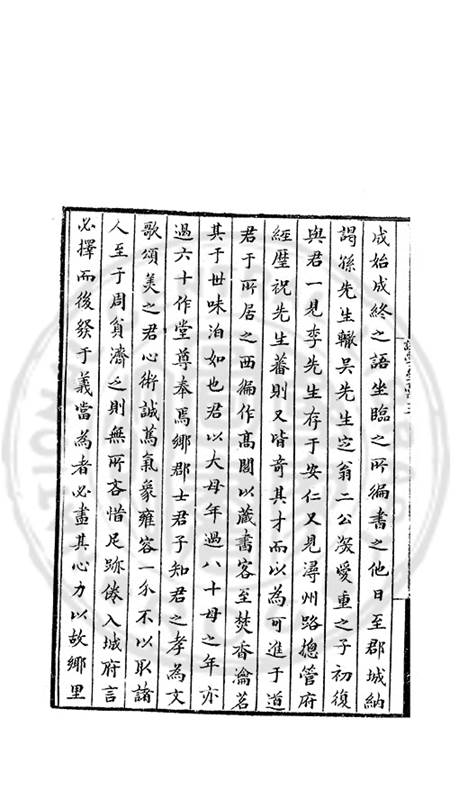 成始成終之語坐臨之所徧書之他日至郡城納
謁孫先生轍吳先生定翁二公深愛重之子初復
與君一見李先生存于安仁又見潯州路總管府
經歷祝先生蕃則又皆奇其才而以為可進于道
君于所居之西徧作髙閣以蔵書客至焚香瀹茗
其于世味泊如也君以大母年過八十母之年亦
過六十作堂尊奉焉鄉郡士君子知君之孝為文
歌頌美之君心術誠篤氣象雍容一介不以取諸
人至于周貧濟乏則無所吝惜足跡倦入城府言
必擇而後發于義當為者必盡其心力以故鄉里